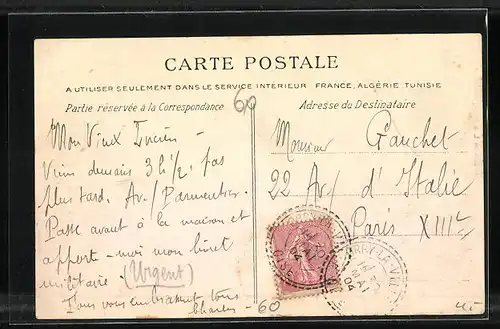 CARTE POSTALE
A UTILISER SEULEMENT DANS LE SERVICE INTERIEUR FRANCE, ALGÉRIE, TUNISIE
Partie réservée à la Correspondance
Adresse du Destinataire
60
Mon Vieux Lucien -
Viens demain 3 h 1/2 pas
plus tard. Av/ Parmentier.
Passe avant à la maison et
apporte-moi mon livret
militaire (Urgent)
Tous vous embrassent tous
Charles -
60
Monsieur Gauchet
22 Av/ d'Italie
Paris XIIIe
MAI
04